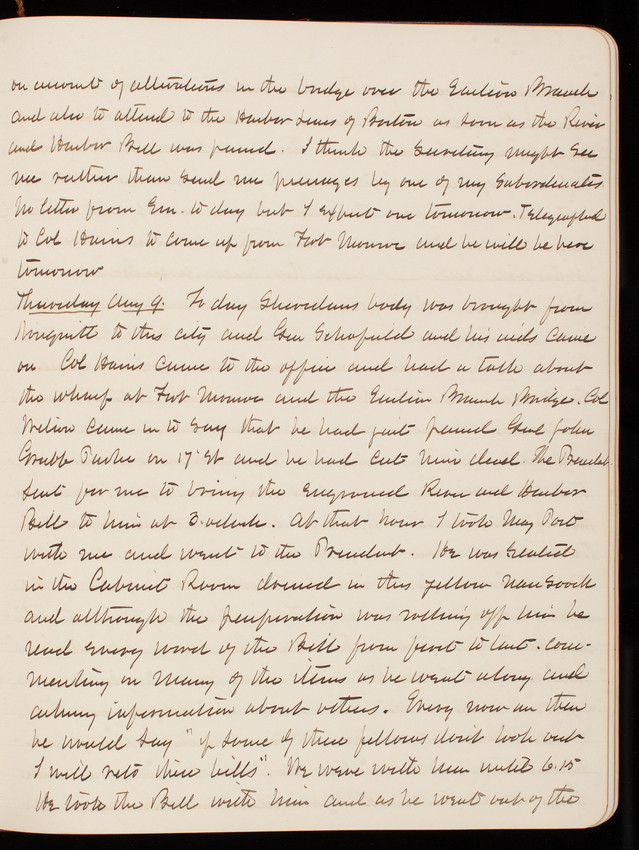 on account of alterations in the bridge over the Eastern Branch
and also to attend to the Harbor Lines of Boston as soon as the River
and Harbor Bill was passed. I think the Secretary might see
me rather than send me messages by one of my subordinates.
No letter from Em. to day but I expect one tomorrow. Telegraphed
to Col Hains to come up from Fort Monroe and he will be here
tomorrow
Thursday Aug 9. To day Sheridans body was brought from
Nonquitt to this city and Gen Schofield and his aids came
on. Col Hains came to the office and had a talk about
the wharf at Fort Monroe and the Eastern Branch Bridge. Col
Wilson came in to say that he had just passed Genl John
Grubb Parke on 17' St and he had cut him dead. The President
sent for me to bring the engrossed River and Harbor
Bill to him at 3 oclock. At that hour I took Maj Post
with me and went to the President. He was seated
in the Cabinet Room dressed in thin yellow
and although the perspiration was rolling off him he
read every word of the Bill from first to last. com-
menting on many of the items as he went along and
asking information about others. Every now an then
he would say "if some of these fellows dont look out
I will veto their bills". We were with him until 6.15
He took the Bill with him and as he went out of the